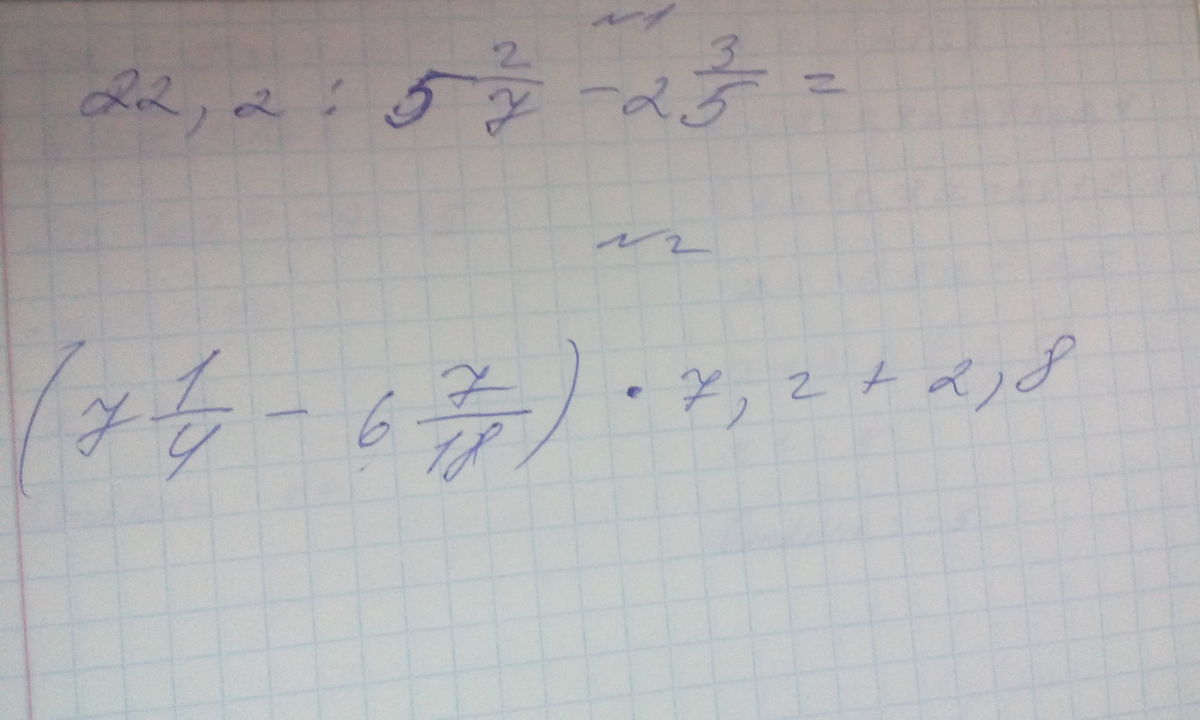 №1
22,2 : 5 2/7 - 2 3/5 =
№2
(7 1/4 - 6 7/18) · 7,2 + 2,8